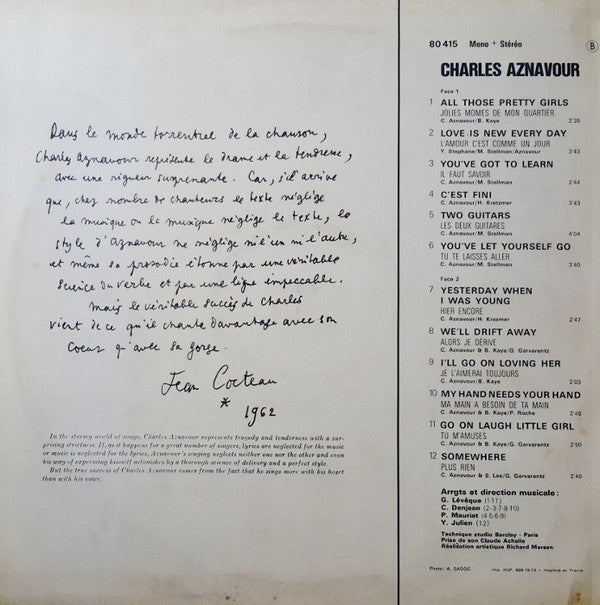 Dans le monde torrentiel de la chanson,
Charles Aznavour représente le drame et la tendresse,
avec une rigueur surprenante. Car, s'il arrive
que, chez nombre de chanteurs le texte néglige
la musique ou la musique néglige le texte, le
style d'Aznavour ne néglige ni l'un ni l'autre,
et même sa prosodie étonne par une véritable
science du verbe et par une ligne impeccable.
Mais le véritable succès de Charles
vient de ce qu'il chante davantage avec son
coeur qu'avec sa gorge.
Jean Cocteau
*
1962
In the stormy world of songs, Charles Aznavour represents tragedy and tenderness with a sur-
prising strictness. If, as it happens for a great number of singers, lyrics are neglected for the music
or music is neglected for the lyrics, Aznavour's singing neglects neither one nor the other and even
his way of expressing himself astonishes by a thorough science of delivery and a perfect style.
But the true success of Charles Aznavour comes from the fact that he sings more with his heart
than with his voice.
80 415 Mono + Stéréo
B
CHARLES AZNAVOUR
Face 1
1 ALL THOSE PRETTY GIRLS
JOLIES MOMES DE MON QUARTIER
C. Aznavour/B. Kaye 2'35
2 LOVE IS NEW EVERY DAY
L'AMOUR C'EST COMME UN JOUR
Y. Stephane/M. Stellman/Aznavour 3'43
3 YOU'VE GOT TO LEARN
IL FAUT SAVOIR
C. Aznavour/M. Stellman 2'44
4 C'EST FINI
C. Aznavour/H. Kretzmer 3'43
5 TWO GUITARS
LES DEUX GUITARES
C. Aznavour/M. Stellman 4'04
6 YOU'VE LET YOURSELF GO
TU TE LAISSES ALLER
C. Aznavour/M. Stellman 3'40
Face 2
7 YESTERDAY WHEN
I WAS YOUNG
HIER ENCORE
C. Aznavour/H. Krezmer
8 WE'LL DRIFT AWAY
ALORS JE DERIVE
C. Aznavour & B. Kaye/G. Garvarentz
9 I'LL GO ON LOVING HER
JE L'AIMERAI TOUJOURS
C. Aznavour/B. Kaye 2'03
10 MY HAND NEEDS YOUR HAND
MA MAIN A BESOIN DE TA MAIN
C. Aznavour & B. Kaye/P. Roche 2'48
11 GO ON LAUGH LITTLE GIRL
TU M'AMUSES
C. Aznavour & B. Kaye/G. Garvarentz 2'50
12 SOMEWHERE
PLUS RIEN
C. Aznavour & S. Lee/G. Garvarentz 2'40
Arrgts et direction musicale :
G. Lévêque (1-11)
C. Denjean (2-3-7-8-10)
P. Mauriat (4-5-6-9)
Y. Julien (12)
Technique studio Barclay - Paris
Prise de son Claude Achalle
Réalisation artistique Richard Marsan
Photo : A. SADOC Imprimé en France